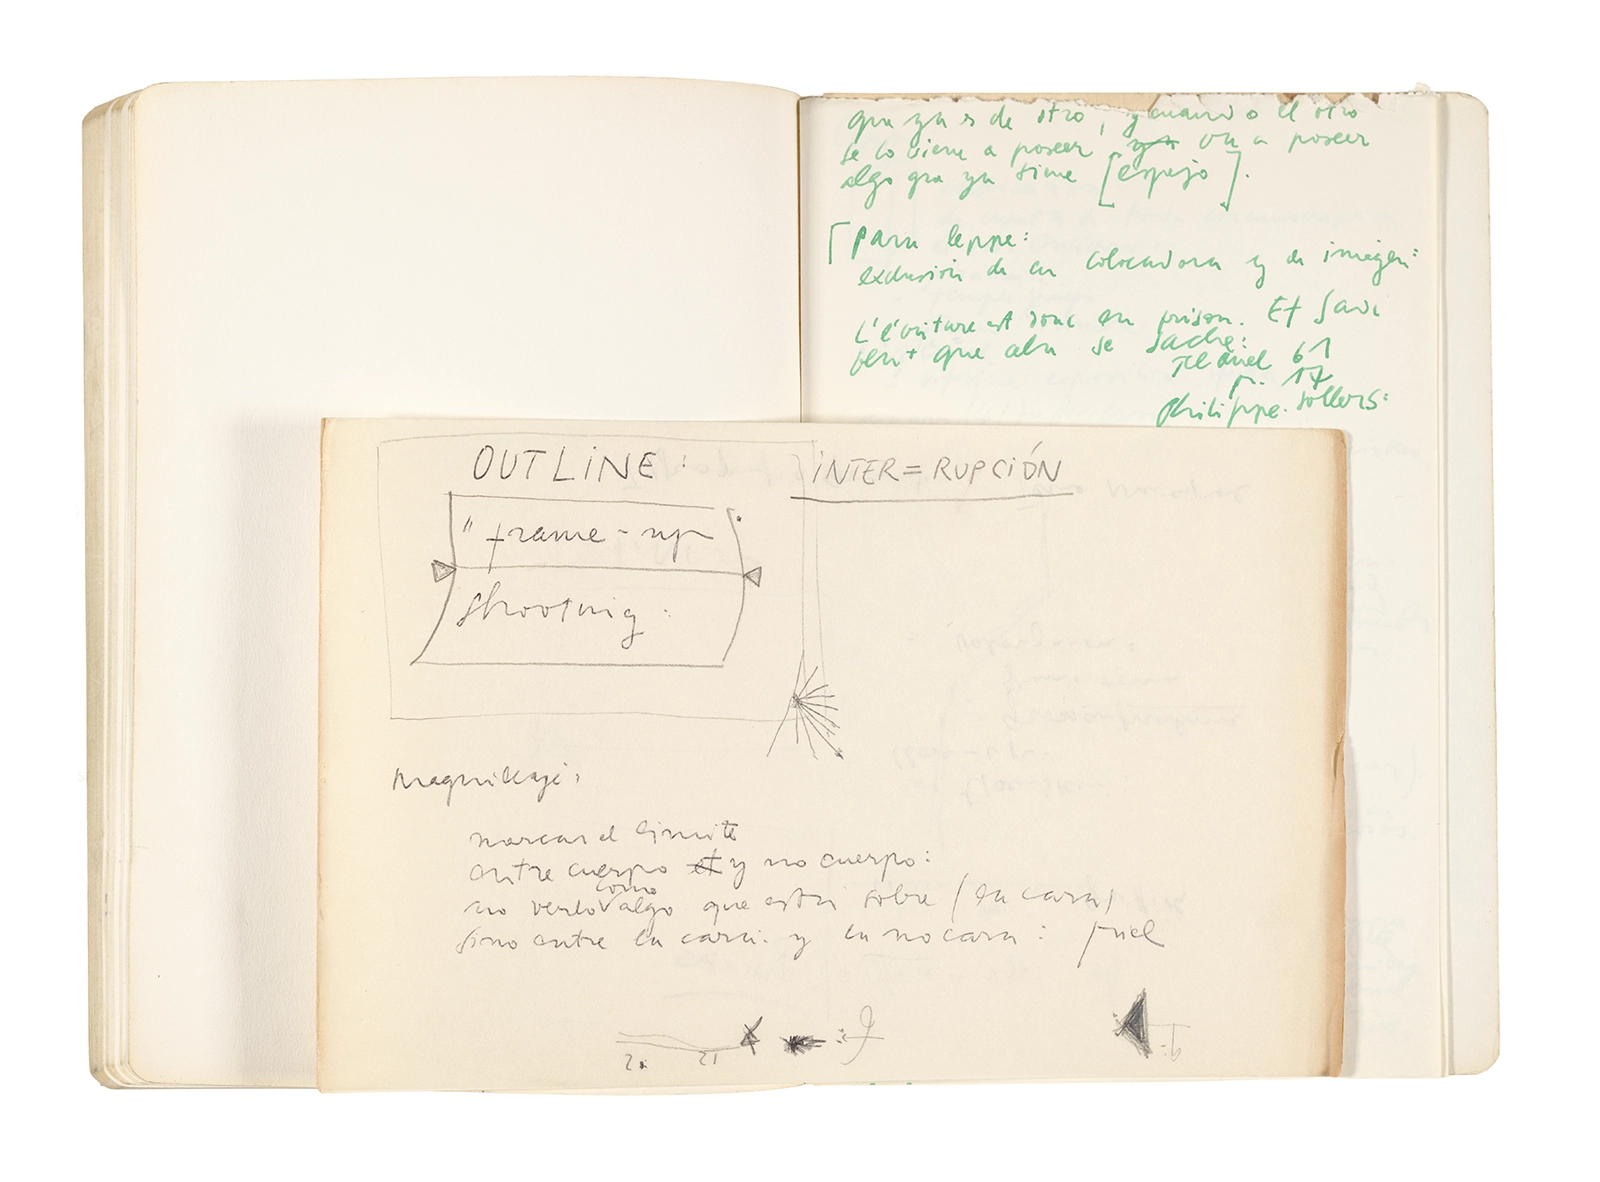 que ya es de otro, y cuando el otro
se lo viene a poseer va a poseer
algo que ya tiene [espejo].
para leppe:
exclusión de la colocadora y de imagen:
L'écriture est donc en prison. Et Savi
que se sache:
Tel quel 61
p. 17
Philippe Sollers:
OUTLINE: INTER=RUPCIÓN
"frame-up"
shooting:
Maquillaje:
marcar el límite
entre cuerpo et y no cuerpo:
como
no verlo algo que está sobre (la cara)
sino entre la cara y la no cara: piel
20 21